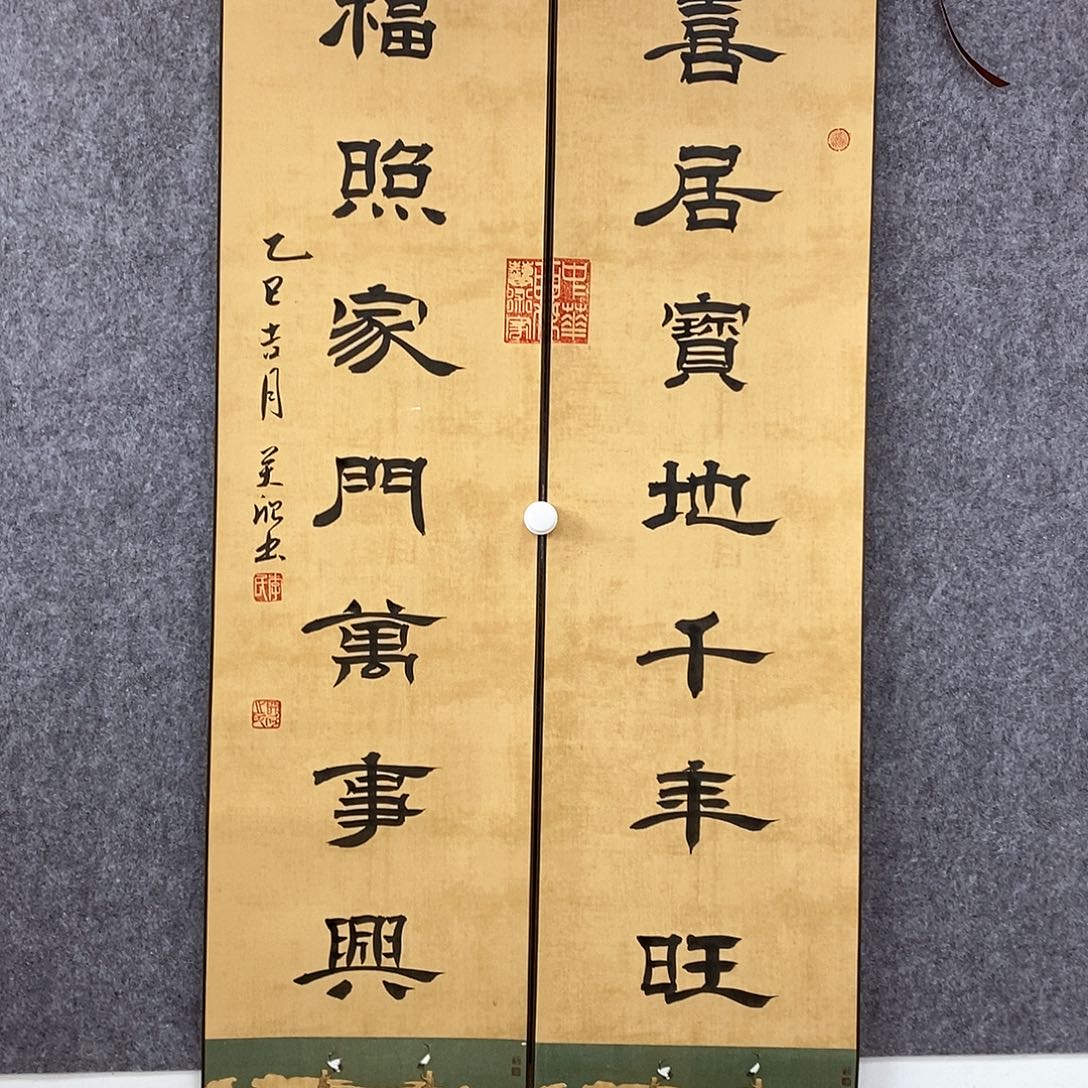 喜居寶地千年旺
福照家門萬事興
乙巳吉月
書
中華